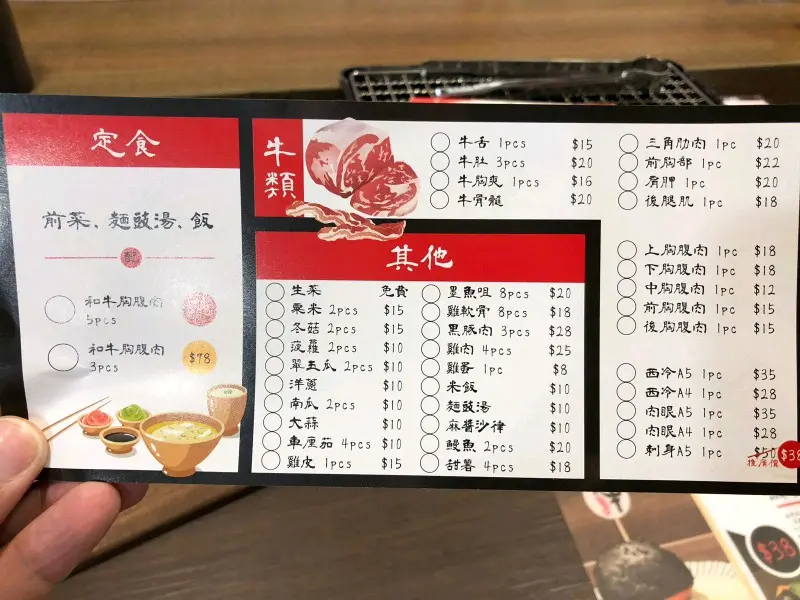 定食
前菜、麵豉湯、飯
配
和牛胸腹肉
5pcs
和牛胸腹肉
3pcs
$78
牛類
牛舌 1pcs $15
牛肚 3pcs $20
牛胸爽 1pcs $16
牛骨髓 $20
其他
生菜 免費
粟米 2pcs $15
冬菇 2pcs $15
菠蘿 2pcs $10
翠玉瓜 2pcs $10
洋蔥 $10
南瓜 2pcs $10
大蒜 $10
車厘茄 4pcs $10
雞皮 1pcs $15
墨魚咀 8pcs $20
雞軟骨 8pcs $18
黑豚肉 3pcs $28
雞肉 4pcs $25
雞蛋 1pc $8
米飯 $10
麵豉湯 $10
麻醬沙律 $10
鰻魚 2pcs $20
甜薯 4pcs $18
三角肋肉 1pc $20
前胸部 1pc $22
肩胛 1pc $20
後腿肌 1pc $18
上胸腹肉 1pc $18
下胸腹肉 1pc $18
中胸腹肉 1pc $12
前胸腹肉 1pc $15
後胸腹肉 1pc $15
西冷A5 1pc $35
西冷A4 1pc $28
肉眼A5 1pc $35
肉眼A4 1pc $28
刺身A5 1pc $50
推廣價 $38
$38